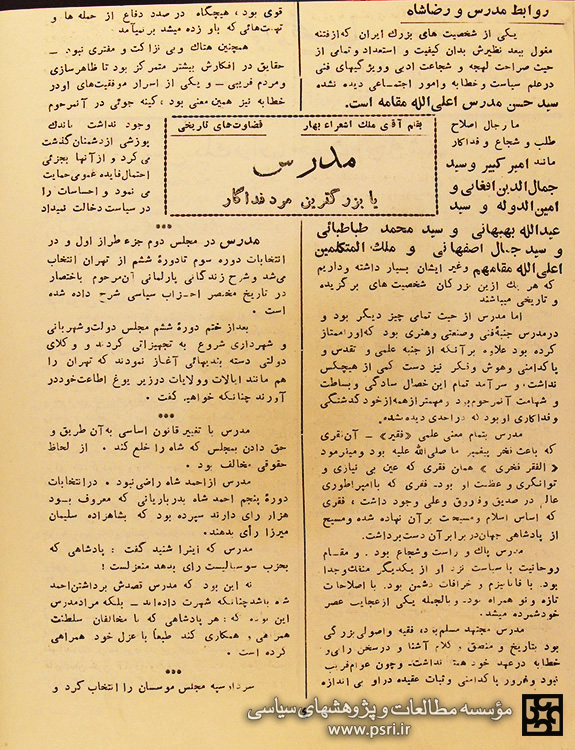 روابط مدرس و رضاشاه
یکی از شخصیت های بزرگ ایران که از فتنه
مغول ببعد نظیرش بدان کیفیت و استعداد و تمامی از
حیث صراحت لهجه و شجاعت ادبی و ویژگیهای فنی
در علم سیاست و خطابه و امور اجتماعی دیده نشده
سید حسن مدرس اعلی‌الله مقامه است.
ما رجال اصلاح
طلب و شجاع و فداکار
مانند امیر کبیر و سید
جمال‌الدین افغانی و
امین‌الدوله و سید
عبدالله بهبهانی و سید محمد طباطبائی
و سید جمال اصفهانی و ملک المتکلمین
اعلی‌الله مقامهم و غیر ایشان بسیار داشته و داریم
که هر یک از این بزرگان شخصیت های برگزیده
و تاریخی میباشند
اما مدرس از حیث تمامی چیز دیگر بود و
در مدرس جنبهٔ فنی و صنعتی و هنری بود که او را ممتاز
کرده بود علاوه بر آنکه از جنبه علمی و تقدس و
پاکدامنی و هوش و فکر نیز دست کمی از هیچکس
نداشت، و سرآمد تمام این خصال سادگی و بساطت
و شهامت آنمرحوم بود و مهمتر از همه از خود گذشتگی
و فداکاری او بود که در احدی دیده نشده.
مدرس بتمام معنی علمی «فقیر» ـ آن فقری
که باعث فخر پیغمبر ما صلی‌الله علیه بود و میفرمود
«الفقر فخری» همان فقری که عین بی نیازی و
توانگری و عظمت او بود. فقری که با امپراطوری
عالم در صدیق و فاروق و علی وجود داشت، فقری
که اساس اسلام و مسیحیت بر آن نهاده شده و مسیح
از پادشاهی جهان در برابر آن دست برداشت.
مدرس پاک و راست و شجاع بود. و مقام
روحانیت با سیاست نزد او از یکدیگر منفک و جدا
بود. با فاناتیزم و خرافات دشمن بود. با اصلاحات
تازه و نو همراه بود. و بالجمله یکی از عجایب عصر
خود شمرده میشد.
مدرس مجتهد مسلم بود، فقیه و اصولی بزرگی
بود بتاریخ و منطق و کلام آشنا و در سخن رانی و
خطابه در عهد خود همتا نداشت. و چون عوام فریب
نبود و غرور پاکدامنی و ثبات عقیده در او بی اندازه
قوی بود، هیچگاه در صدد دفاع از حمله ها و
تهمت‌هائی که باو زده میشد بر نمیآمد.
همچنین هتاک و بی نزاکت و مفتری نبود ـ
حقایق در افکارش بیشتر متمرکز بود تا ظاهرسازی
و مردم فریبی ـ و یکی از اسرار موفقیت‌های او در
خطابه نیز همین معنی بود، کینه جوئی در آنمرحوم
وجود نداشت باندک
پوزشی از دشمنان گذشت
می کرد و از آنها بجزئی
احتمال فایده عمومی حمایت
می نمود و احساسات را
در سیاست دخالت نمیداد
بقلم آقای ملک الشعراء بهار
قضاوت‌های تاریخی
مدرس
یا بزرگترین مرد فداکار
***
مدرس در مجلس دوم جزء طراز اول و در
انتخابات دوره سوم تا دورهٔ ششم از تهران انتخاب
می‌شد و شرح زندگانی پارلمانی آنمرحوم باختصار
در تاریخ مختصر احزاب سیاسی شرح داده شده
است.
بعد از ختم دورهٔ ششم مجلس دولت و شهربانی
و شهرداری شروع به تجهیزاتی کردند و وکلای
دولتی دسته بندیهائی آغاز نمودند که تهران را
هم مانند ایالات و ولایات در زیر یوغ اطاعت خود در
آورند چنانکه خواهیم گفت.
***
مدرس با تغییر قانون اساسی به آن طریق و
حق دادن بمجلس که شاه را خلع کند. از لحاظ
حقوقی مخالف بود.
مدرس از احمد شاه راضی نبود. در انتخابات
دورهٔ پنجم احمد شاه بدربار‌یانی که معروف بود
هزار رأی دارند سپرده بود که بشاهزاده سلیمان
میرزا رأی بدهند.
مدرس که اینرا شنید گفت: پادشاهی که
بحزب سوسیالیست رأی بدهد منعزلست!
نه این بود که مدرس قصدش برداشتن احمد
شاه باشد چنانکه شهرت داده‌اند ـ بلکه مراد مدرس
این بوده که: هر پادشاهی که با مخالفان سلطنت
همراهی و همکاری کند طبعاً با عزل خود همراهی
کرده است.
***
سردار سپه مجلس موسسان را انتخاب کرد و
مؤسسه مطالعات و پژوهشهای سیاسی
www.psri.ir